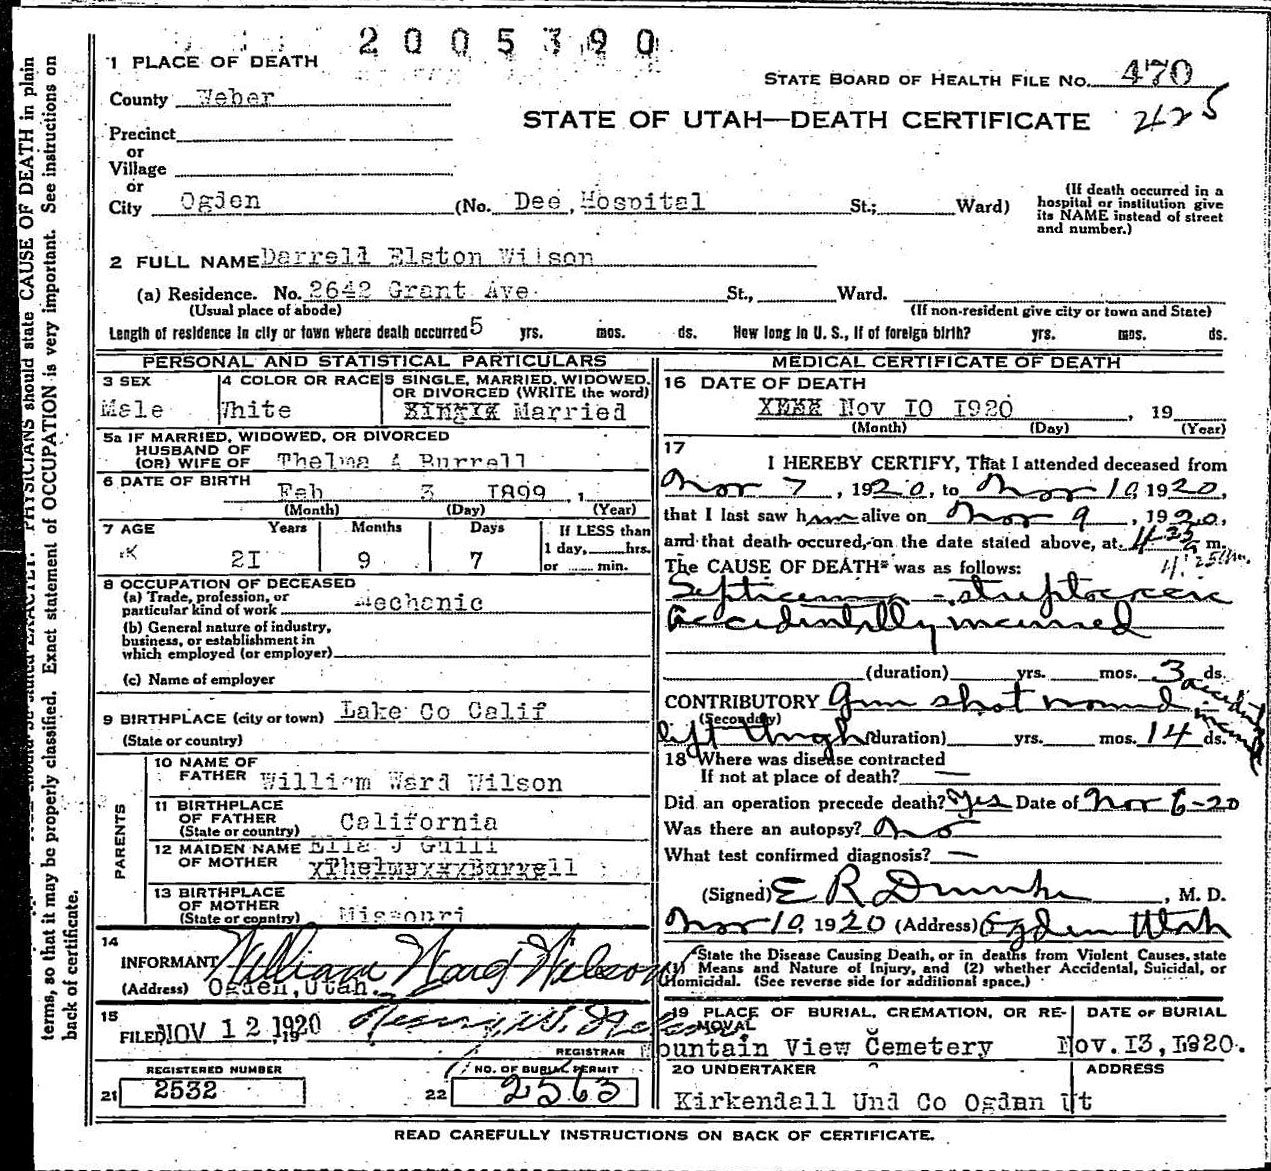 2005390
1 PLACE OF DEATH
STATE BOARD OF HEALTH FILE No. 470
County Weber
STATE OF UTAH—DEATH CERTIFICATE
2425
Precinct
or
Village
or
City Ogden (No. Dee Hospital St.; Ward)
(If death occurred in a hospital or institution give its NAME instead of street and number.)
2 FULL NAME Darrell Elston Wilson
(a) Residence. No. 2642 Grant Ave. St., Ward.
(Usual place of abode) (If non-resident give city or town and State)
Length of residence in city or town where death occurred 5 yrs. mos. ds. How long in U. S., if of foreign birth? yrs. mos. ds.
PERSONAL AND STATISTICAL PARTICULARS
3 SEX Male
4 COLOR OR RACE White
5 SINGLE, MARRIED, WIDOWED, OR DIVORCED (WRITE the word) Married
5a IF MARRIED, WIDOWED, OR DIVORCED
HUSBAND OF
(OR) WIFE OF Thelma A Burrell
6 DATE OF BIRTH Feb 3 1899
(Month) (Day) (Year)
7 AGE Years Months Days If LESS than
21 9 7 1 day, hrs.
or min.
8 OCCUPATION OF DECEASED
(a) Trade, profession, or
particular kind of work Mechanic
(b) General nature of industry,
business, or establishment in
which employed (or employer)
(c) Name of employer
9 BIRTHPLACE (city or town) Lake Co Calif
(State or country)
PARENTS
10 NAME OF
FATHER William Ward Wilson
11 BIRTHPLACE
OF FATHER
(State or country) California
12 MAIDEN NAME Ella J Guill
OF MOTHER xThelmaxxxBurrell
13 BIRTHPLACE
OF MOTHER
(State or country) Missouri
14
INFORMANT William Ward Wilson
(Address) Ogden, Utah.
15
FILED NOV 12 1920
REGISTRAR
REGISTERED NUMBER
21 2532
NO. OF BURIAL PERMIT
22 2563
MEDICAL CERTIFICATE OF DEATH
16 DATE OF DEATH
Nov 10 1920, 19
(Month) (Day) (Year)
17
I HEREBY CERTIFY, That I attended deceased from
Nov 7, 1920, to Nov 10, 1920,
that I last saw him alive on Nov 9, 1920,
and that death occured, on the date stated above, at 4:25 a m.
4:25 a.m.
The CAUSE OF DEATH* was as follows:
Septicemia - streptococcic
Accidentally incurred
(duration) yrs. mos. 3 ds.
CONTRIBUTORY Gun shot wound accidentally incurred
(Secondary)
left thigh (duration) yrs. mos. 14 ds.
18 Where was disease contracted
If not at place of death? —
Did an operation precede death? Yes Date of Nov 6-20
Was there an autopsy? No
What test confirmed diagnosis? —
(Signed) E R , M. D.
Nov 10, 1920 (Address) Ogden Utah
State the Disease Causing Death, or in deaths from Violent Causes, state
(1) Means and Nature of Injury, and (2) whether Accidental, Suicidal, or
Homicidal. (See reverse side for additional space.)
19 PLACE OF BURIAL, CREMATION, OR REMOVAL DATE OF BURIAL
Mountain View Cemetery Nov. 13, 1920.
20 UNDERTAKER ADDRESS
Kirkendall Und Co Ogden Ut
READ CAREFULLY INSTRUCTIONS ON BACK OF CERTIFICATE.
PHYSICIANS should state CAUSE OF DEATH in plain
terms, so that it may be properly classified. Exact statement of OCCUPATION is very important. See instructions on
back of certificate.